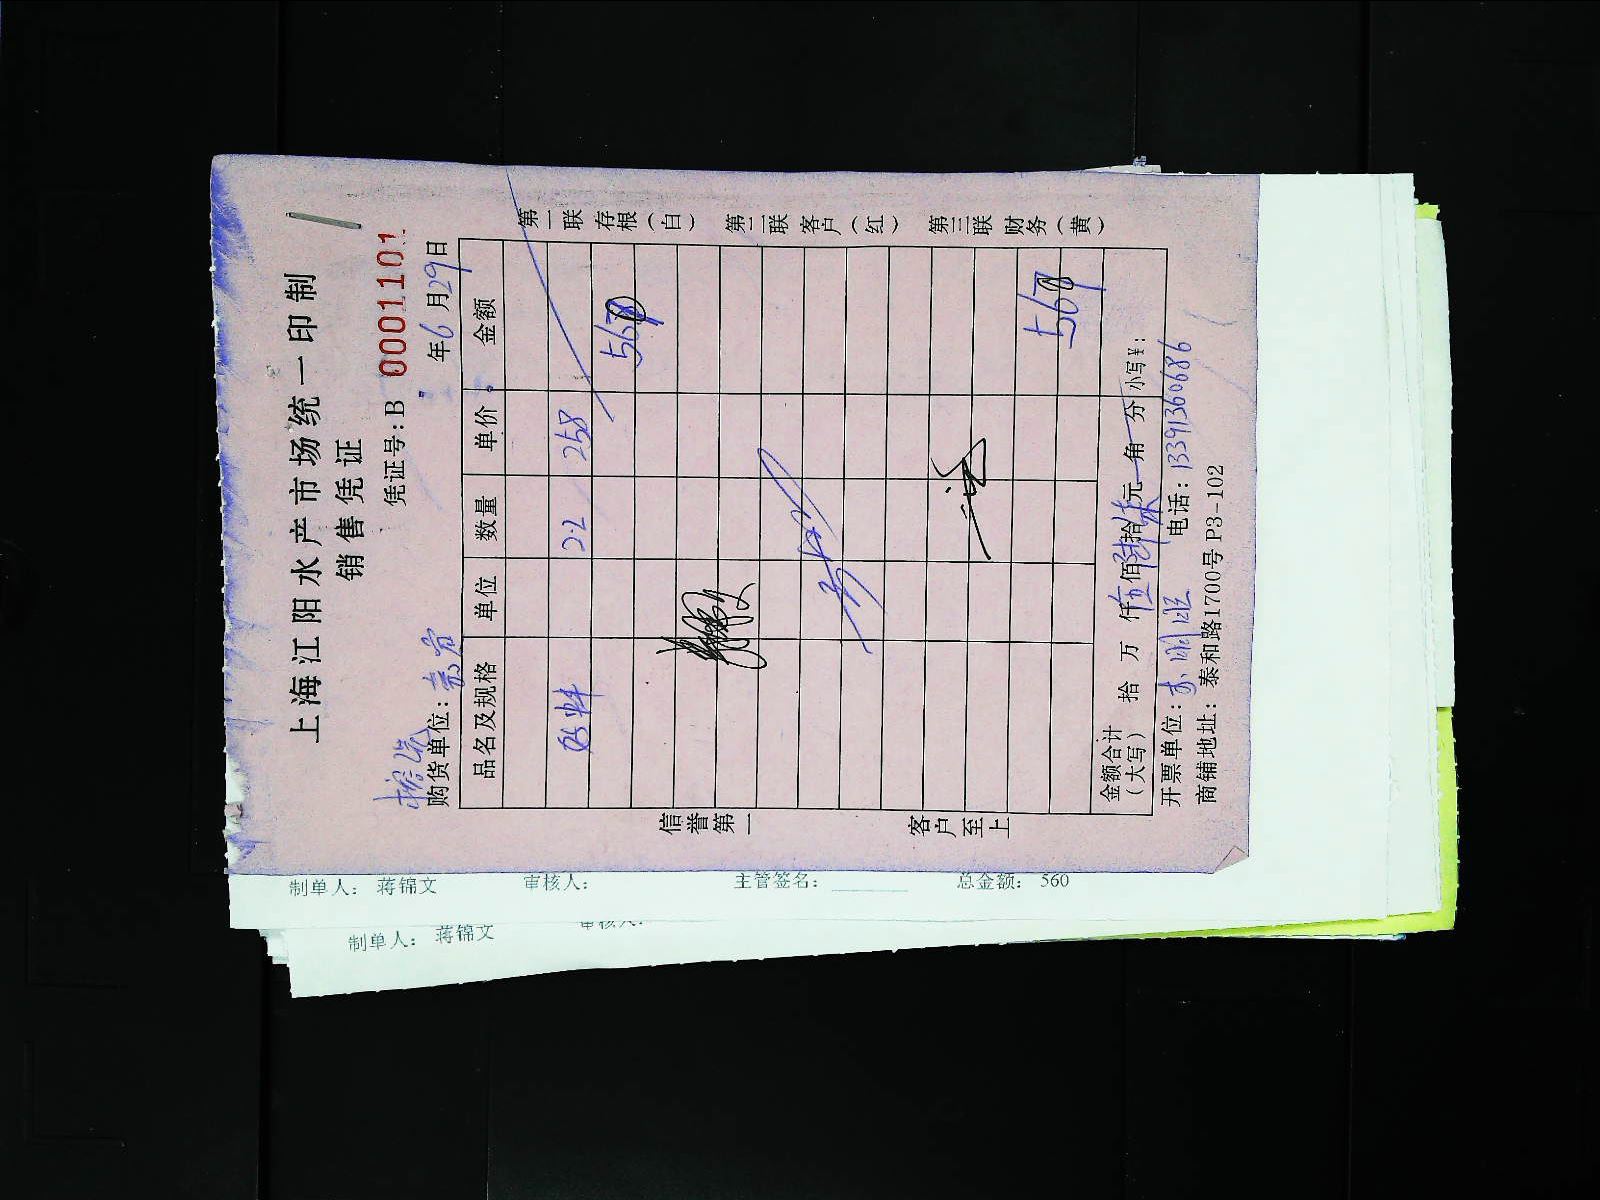 上海江阳水产市场统一印制
销售凭证
凭证号:B 0001101
年6月29日
购货单位:
品名及规格 单位 数量 单价 金额
22 258
567
567
金额合计(大写) 拾 万 仟伍佰陆拾柒元 角 分 小写¥:
开票单位: 电话:13391360686
商铺地址:泰和路1700号P3-102
信誉第一 客户至上
第一联 存根(白) 第二联 客户(红) 第三联 财务(黄)
制单人: 蒋锦文 审核人: 主管签名: 总金额: 560
制单人: 蒋锦文 审核人: